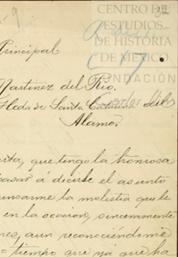 CENTRO DE
ESTUDIOS
DE HISTORIA
DE MEXICO
FUNDACIÓN
Principal
Martinez del Rio.
Hda de Santa Catarina del
Alamo.
que tengo la honrosa
á decirle el asunto
la molestia que le
en la ocasion, sinceramente
aun reconociéndome
tiempo que ya que ha